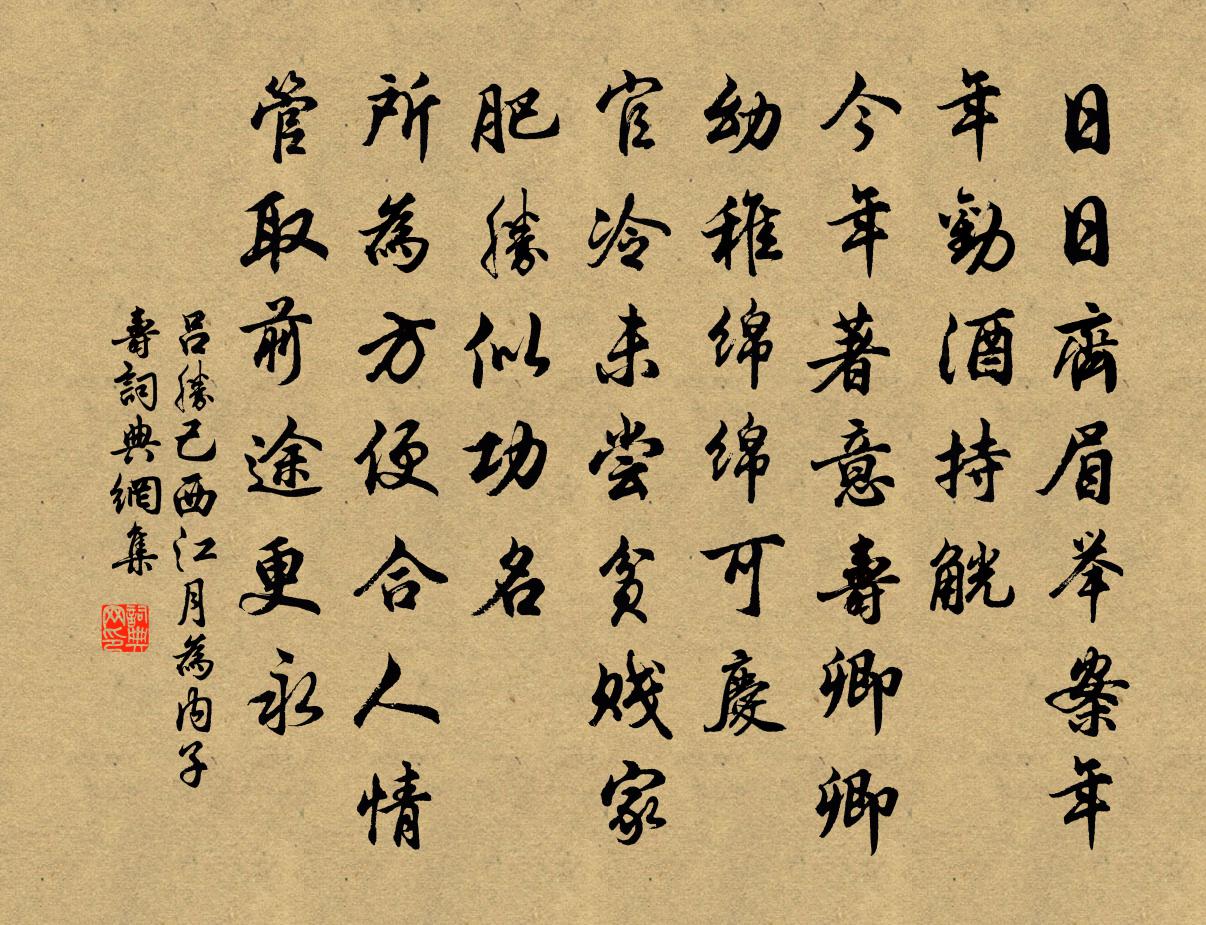 日日齊眉举案年
年勸酒持觥
今年著意壽卿卿
幼稚绵绵可慶
官冷未尝贫贱家
肥勝似功名
所為方便合人情
管取前途更永
呂勝己西江月為内子
壽詞典網集
詞典网印